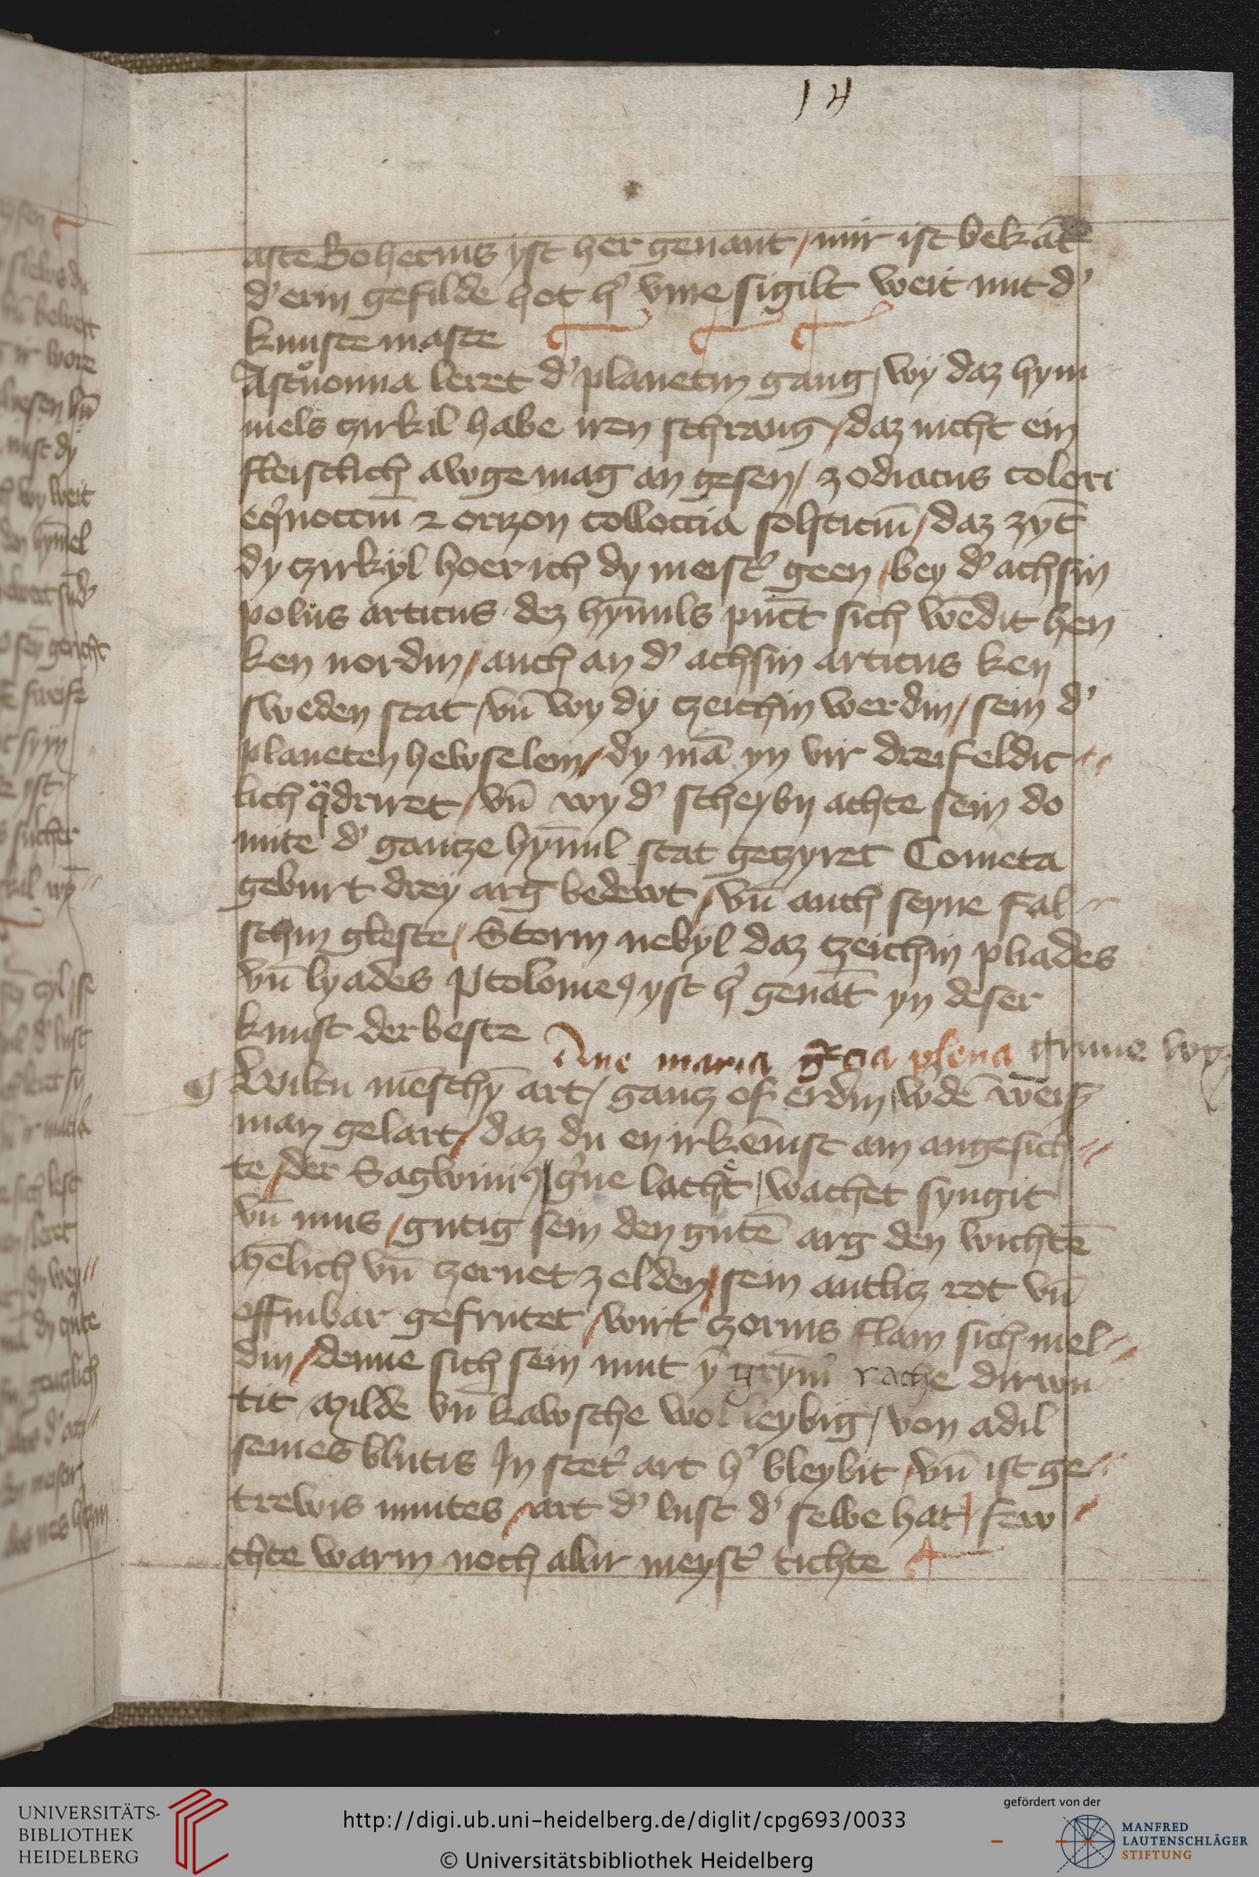 14
aste Bohecius yst her genant / mir ist bekāt
d' erin gefilde hot h' vme sigilt weit mit d'
kunste maste
Astronnia leret d' planetin gang / wy daz hym
mels czirkil habe iren schrang / daz nicht ein
fleischlich awge mag an gesen / zodiacus colori
eq'noccm̄ ⁊ orizon colloccia solsticiū / daz zyt
dy czirkyl hoer ich dy meist' geen / bey d' achsin
polus articus dez hȳmils pūct sich wēdit hen
ken nordin / auch an d' achsin articus ken
sweden stat / vn̄ wy dy zceichin werdin / sein d'
planeten hewselein / dy mā yn vir dreifeldic
lich q̈driret / vn̄ wy d' scheybn achte sein do
mite d' gantze hȳmil stat geczyret Cometa
geburt drey arg bedewt / vn̄ auch seyne fal
schin gleste / Storm nebyl daz czeichin pliades
vn̄ lyades Ptolome9 yst h' genāt yn deser
kunst der beste
Aue maria gr̄cia plena grune
Wiltu mēschȳ art / gancz of erdin
man gelart / daz du en irkēnist am angesich
te / der Sagwini9 g'ne lachēt / wachet syngit
vn̄ mus / gutig sein den gutē arg den wichtē
mēlich vn̄ zcornet zelden / sein antlicz rot vn̄
offinbar gefrutet / wirt czornis flam sich mel
din / denne sich sein mut ȳ grȳm rache dirwu
tit Milde vn̄ kawsche wol leybig / von adil
seines blutis In stet' art h' bleybit / vn̄ ist ge
trewis mutes / art d' lust d' selbe hat / few
chte warm noch allir meyst' tichte
UNIVERSITÄTS-
BIBLIOTHEK
HEIDELBERG
http://digi.ub.uni-heidelberg.de/diglit/cpg693/0033
© Universitätsbibliothek Heidelberg
gefördert von der
MANFRED
LAUTENSCHLÄGER
STIFTUNG